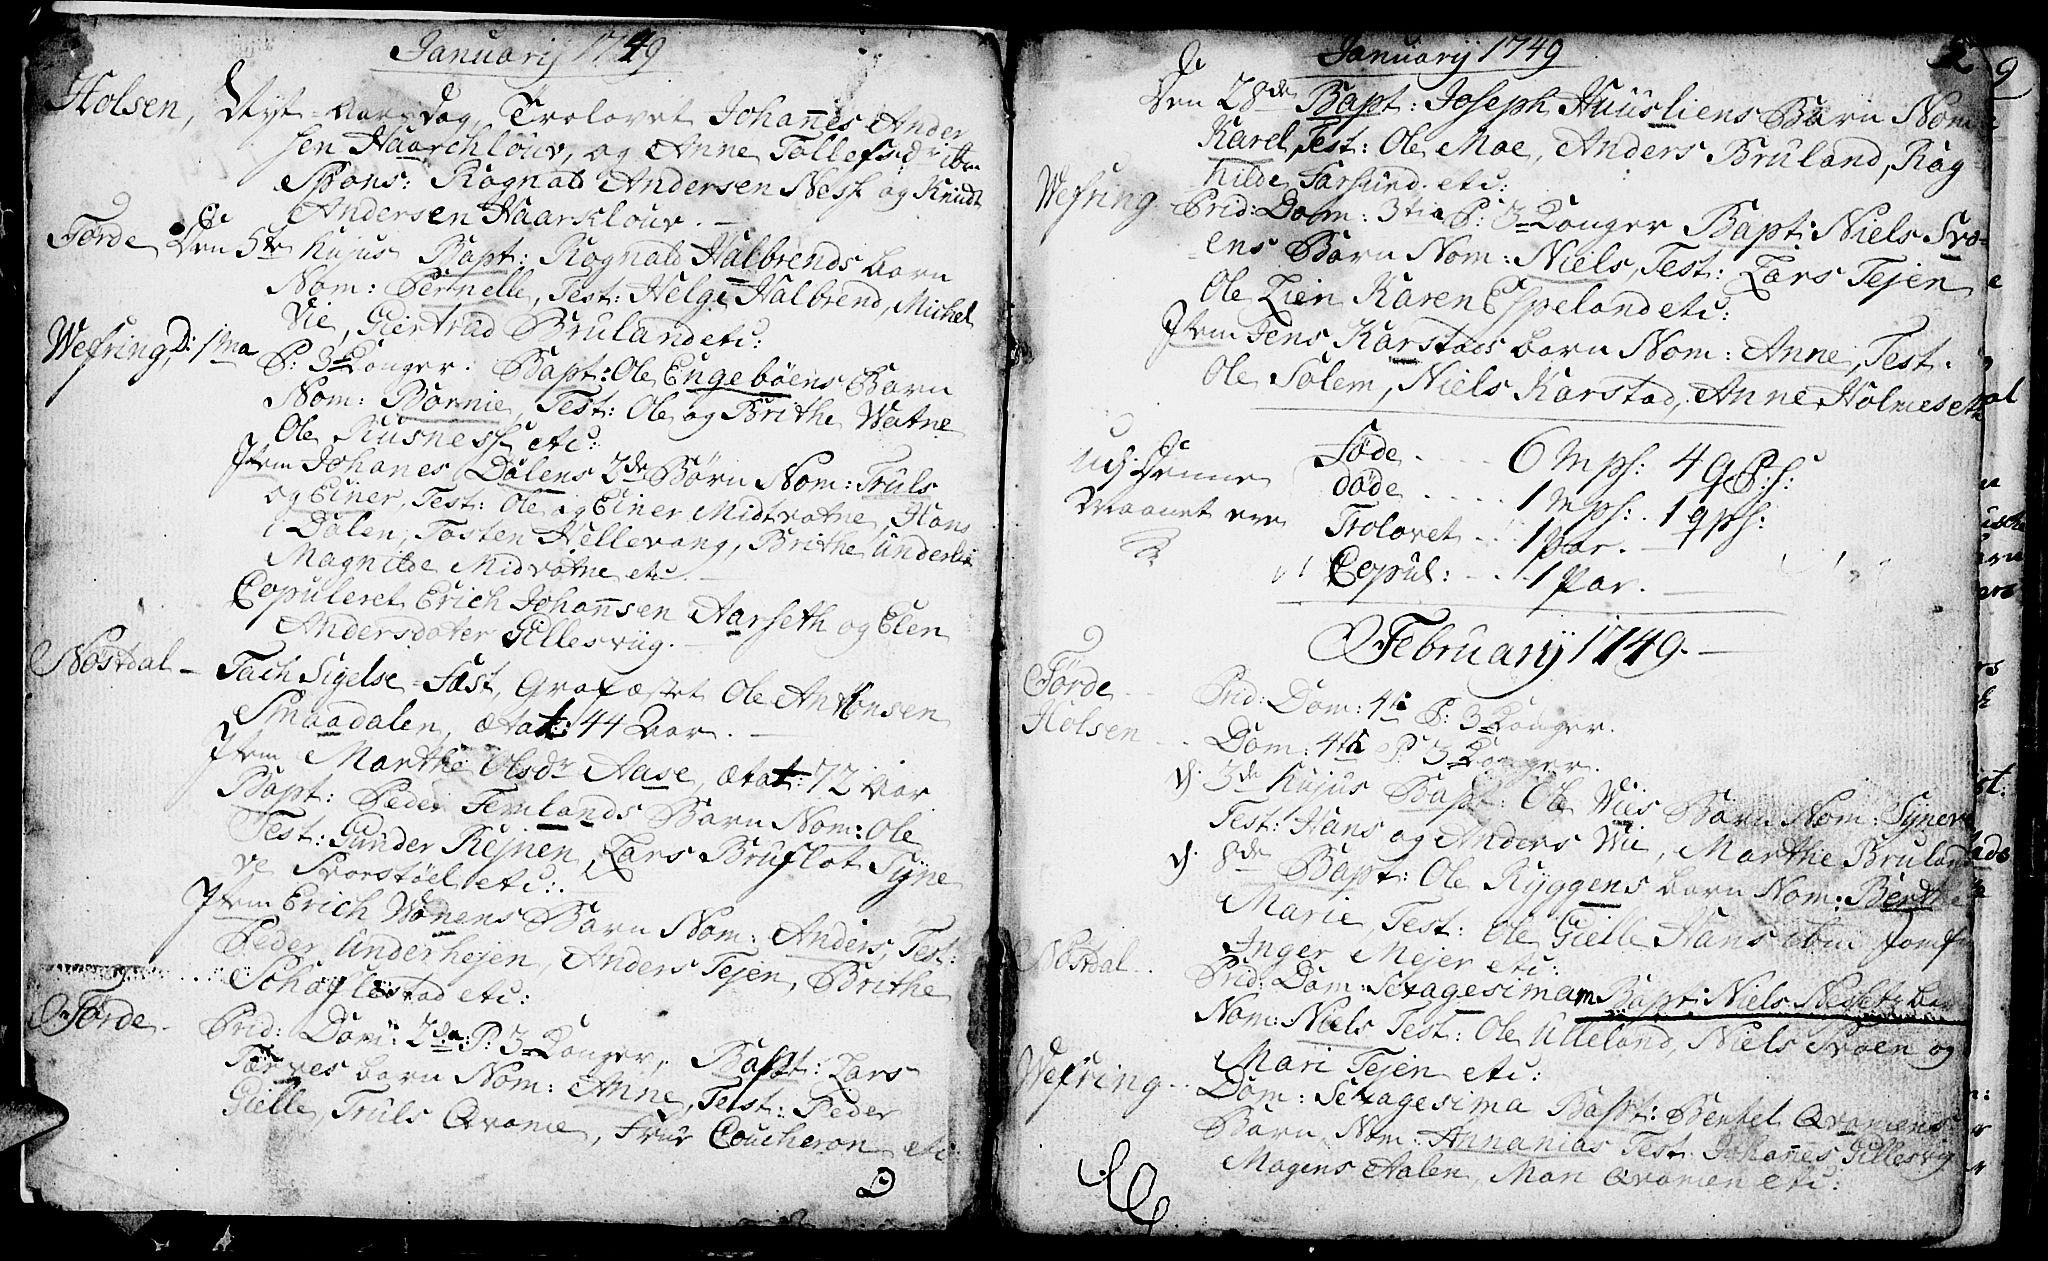 Januarij 1749
Holsen, Nyt-Aarsdag, Trolovet Johannes Ander
sen Haarchlouv, og Anne Tollefsdr ibm
Spons: Rognald Andersen Ness og Knudt
Andersen Haarklouv.
Førde Den 5te hujus Bapt: Rognald Halbrends barn
Nom: Pernelle, Test: Helge Halbrend, Michel
Vie, Giertrud Bruland etc:
Wefring, D: 1ma
P: 3 Konger. Bapt: Ole Engebøens Barn
Nom: Bornie, Test: Ole og Brithe Watne
Ole Rusness etc:
Item Johanes Dalens 2de Børn Nom: Truls
og Einer, Test: Ole og Einer Midtvatne, Hans
i Dalen, Tosten Hellevang, Brithe Underli
Magnilde Midvatne etc
Copuleret Erich Johannsen Aarseth og Elen
Andersdater Gillesviig.
Nøstdal - Tach Sigelse-Fæst, Grafæstet Ole Antonsen
Smaadalen, ætat: 44 Aar.
Item Marthe Olsdr Aase, ætat: 72 Aar
Bapt: Peder Femlands Barn Nom: Ole
Test: Gunder Rejnen, Lars Bruflot Syne
ve Svorstøel etc:
Item Erich Wonens Barn Nom: Anders, Test:
Peder Underhejen, Anders Tejen, Brithe
Schaflestad etc:
Førde - Prid: Dom: 2da P: 3 Konger, Bapt: Lars
Færres barn Nom: Anne, Test: Peder
Gielle, Truls Qvame, Frue Coucheron etc
Januarij 1749
2
Den 28de Bapt: Joseph Huusliens Barn Nom
Karel, Test: Ole Moe, Anders Bruland, Rag
hilde Farsund. etc:
Wefring - Prid: Dom: 3tia P: 3 Konger Bapt: Niels Svo-
ens Barn Nom: Niels, Test: Lars Tejen
Ole Lien Karen Espeland etc:
Item Jens Karstads barn Nom: Anne, Test:
Ole Solem, Niels Karstad, Anne Holmeset
Udj denne
Maanet ere
Føde .... 6 Mpf: 4 qP:f:
døde ..... 1 mpf: 1 qpf:
Trolovet ... 1 Par.
Copul: .... 1 Par.
February 1749.
Førde - Prid: Dom: 4ta P: 3 Konger.
Holsen - Dom: 4ta P: 3 Konger.
d. 3de hujus Bapt: Ole Vies Barn Nom: Syneve
Test: Hans og Anders Wie, Marthe Bruland
d. 8de Bapt: Ole Ryggens barn Nom: Berthe
Marie Test: Ole Gielle Hans ibm Jomfr
Inger Mejer etc:
Nøstdal .. Prid: Dom: Sexagesimam Bapt: Niels Nessets bar
Nom: Niels Test: Ole Ulleland, Niels Svoen og
Mari Tejen etc:
Wefring .. Dom: Sexagesima Bapt: Bentel Qvamens
Barn Nom: Annanias Test: Johannes Gillesvig
Magens Aalen, Mari Qvamen etc: